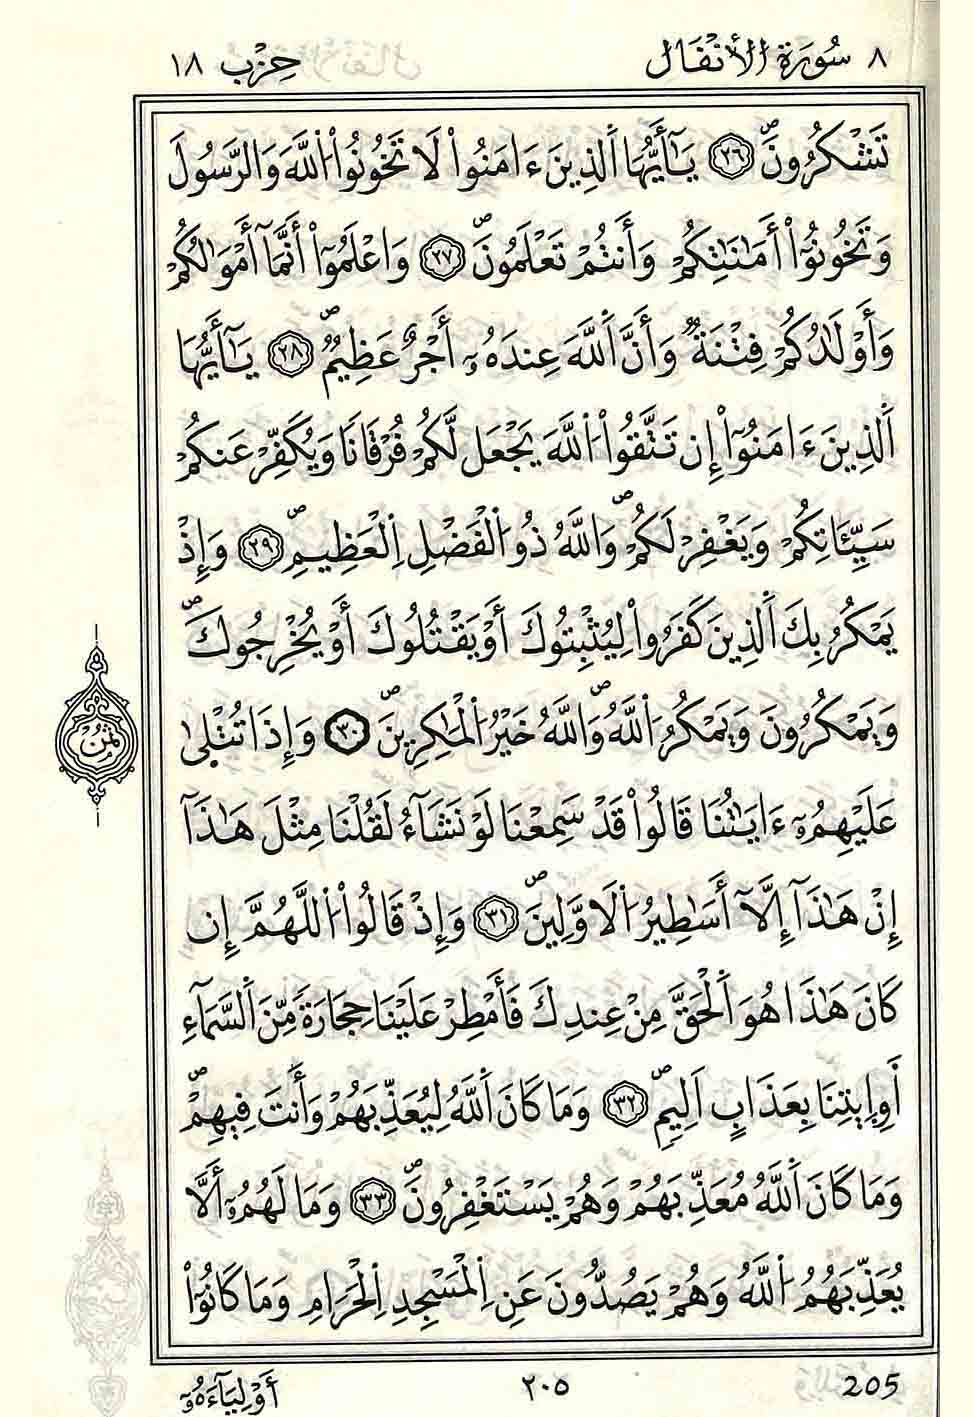 ٨ سُورَةُ الْأَنْفَال حِزْب ١٨
تَشْكُرُونَۖ ٢٦ يَٰٓأَيُّهَا اَ۬لذِينَ ءَامَنُواْ لَا تَخُونُواْ اُ۬للَّهَ وَالرَّسُولَ
وَتَخُونُوٓاْ أَمَٰنَٰتِكُمْ وَأَنتُمْ تَعْلَمُونَۖ ٢٧ وَاعْلَمُوٓاْ أَنَّمَآ أَمْوَٰلُكُمْ
وَأَوْلَٰدُكُمْ فِتْنَةٞ وَأَنَّ اَ۬للَّهَ عِندَهُۥٓ أَجْرٌ عَظِيمٞۖ ٢٨ يَٰٓأَيُّهَا
اَ۬لذِينَ ءَامَنُوٓاْ إِن تَتَّقُواْ اُ۬للَّهَ يَجْعَل لَّكُمْ فُرْقَاناً وَيُكَفِّرْ عَنكُمْ
سَيِّـَٔاتِكُمْ وَيَغْفِرْ لَكُمْۖ وَاللَّهُ ذُو اُ۬لْفَضْلِ اِ۬لْعَظِيمِۖ ٢٩ وَإِذْ
يَمْكُرُ بِكَ اَ۬لذِينَ كَفَرُواْ لِيُثْبِتُوكَ أَوْ يَقْتُلُوكَ أَوْ يُخْرِجُوكَۖ
وَيَمْكُرُونَ وَيَمْكُرُ اُ۬للَّهُۖ وَاللَّهُ خَيْرُ اُ۬لْمَٰكِرِينَۖ ٣٠ وَإِذَا تُتْلَىٰ
ثُمُن
عَلَيْهِمُۥٓ ءَايَٰتُنَا قَالُواْ قَدْ سَمِعْنَا لَوْ نَشَآءُ لَقُلْنَا مِثْلَ هَٰذَآ
إِنْ هَٰذَآ إِلَّآ أَسَٰطِيرُ اُ۬لَاوَّلِينَۖ ٣١ وَإِذْ قَالُواْ اُ۬للَّهُمَّ إِن
كَانَ هَٰذَا هُوَ اَ۬لْحَقَّ مِنْ عِندِكَ فَأَمْطِرْ عَلَيْنَا حِجَارَةٗ مِّنَ اَ۬لسَّمَآءِ
أَوِ اِ۪ئْتِنَا بِعَذَابٍ اَلِيمٖۖ ٣٢ وَمَا كَانَ اَ۬للَّهُ لِيُعَذِّبَهُمْ وَأَنتَ فِيهِمْۖ
وَمَا كَانَ اَ۬للَّهُ مُعَذِّبَهُمْ وَهُمْ يَسْتَغْفِرُونَۖ ٣٣ وَمَا لَهُمُۥٓ أَلَّا
يُعَذِّبَهُمُ اُ۬للَّهُ وَهُمْ يَصُدُّونَ عَنِ اِ۬لْمَسْجِدِ اِ۬لْحَرَامِ وَمَا كَانُوٓاْ
أَوْلِيَآءَهُۥٓ ٢٠٥ 205